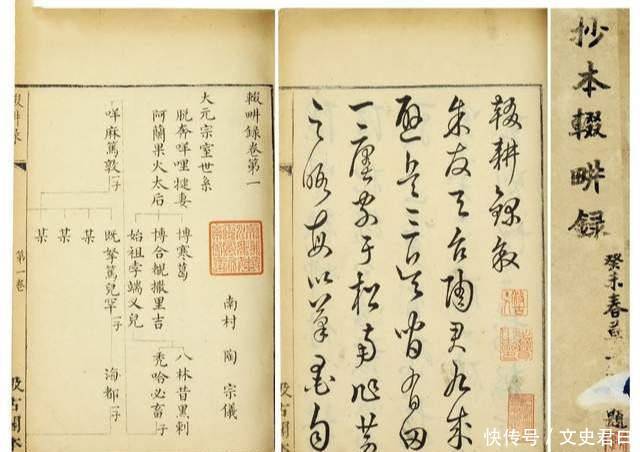 抄本輟畊録
癸未春
題
輟耕錄敘
余友天台陶君九成
避兵三吳間有田
一廛家于松南作勞
之暇每以筆墨自
輟畊錄卷第一
南村 陶宗儀
大元宗室世系
脫奔咩哩揵妻
阿蘭果火太后
博寒葛
博合覩撒里吉
始祖孛端叉兒
八林昔黑剌
禿哈必畜 子
咩麻篤敦 子
既拏篤兒罕 子
海都 子
某
某
某
某
第一卷
汲古閣本
快传号／文史君曰